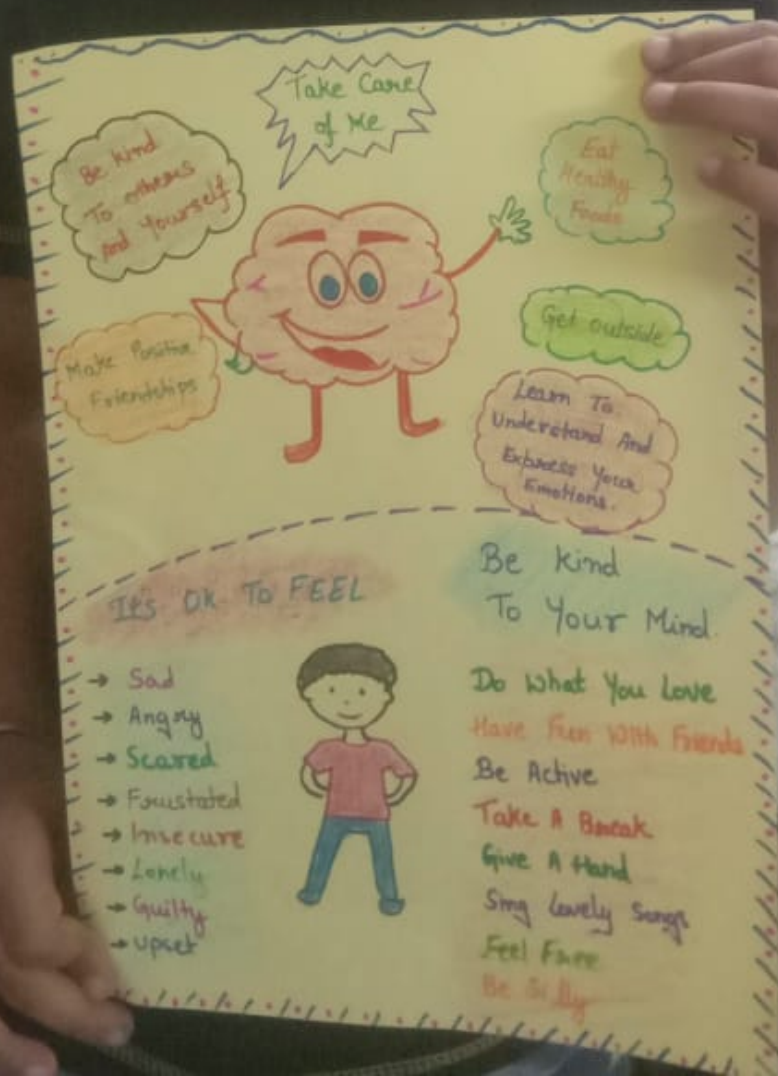 Take Care
of Me
Be kind
To others
And Yourself
Eat
Healthy
Foods
Make Positive
Friendships
Get outside
Learn To
Understand And
Express Your
Emotions.
It's OK To FEEL
→ Sad
→ Angry
→ Scared
→ Frustated
→ Insecure
→ Lonely
→ Guilty
→ upset
Be kind
To Your Mind.
Do What You Love
Have Fun With Friends
Be Active
Take A Break
Give A Hand
Sing Lovely Songs
Feel Free
Be Silly